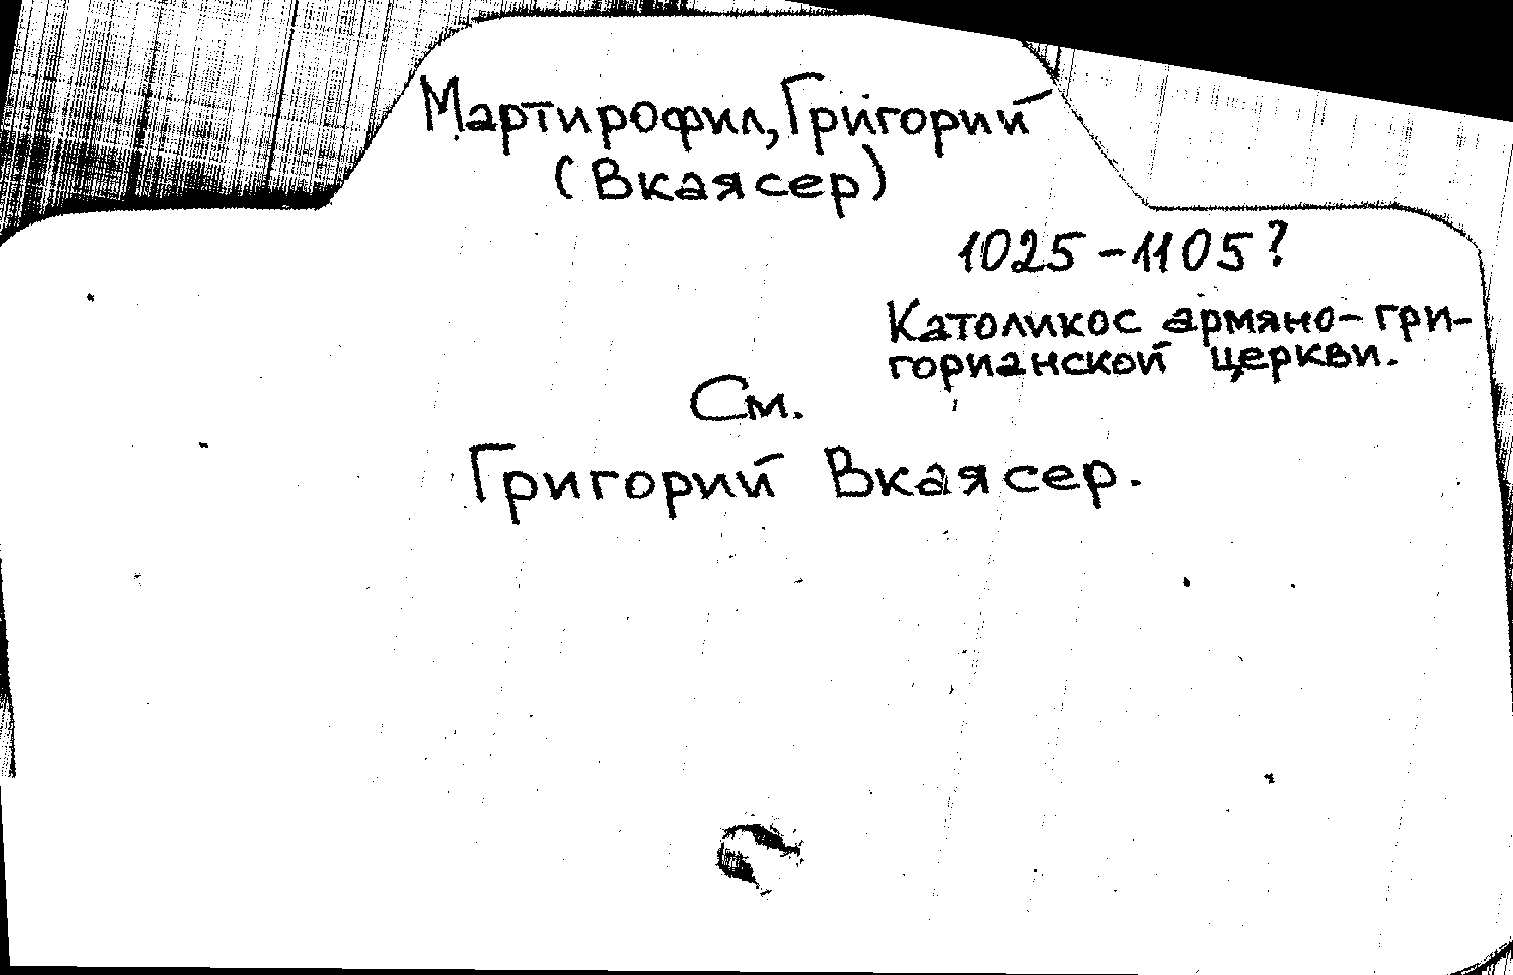 Мартирофил, Григорий
(Вкаясер)
1025-1105?
Католикос армяно-гри-
горианской церкви.
См.
Григорий Вкаясер.